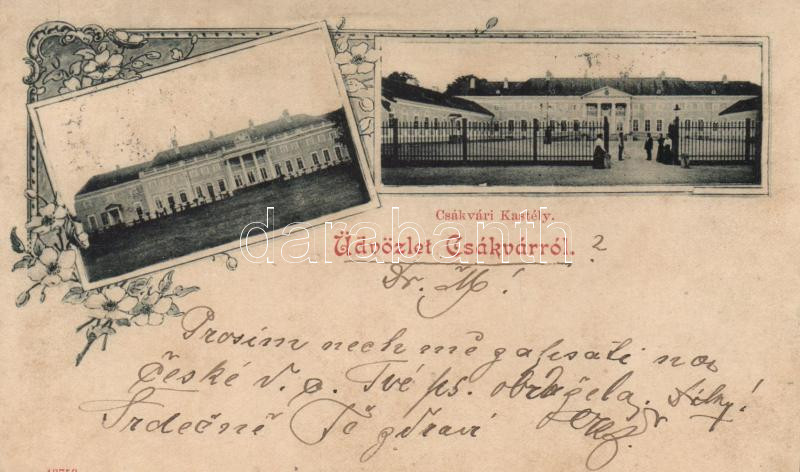 Csákvári Kastély.
Üdvözlet Csákvárról. ?
darabanth
Dr. M!
Prosím nech mě psáti na
České v. c. Tvé ps. obdržela. Díky!
Srdečně Tě zdraví